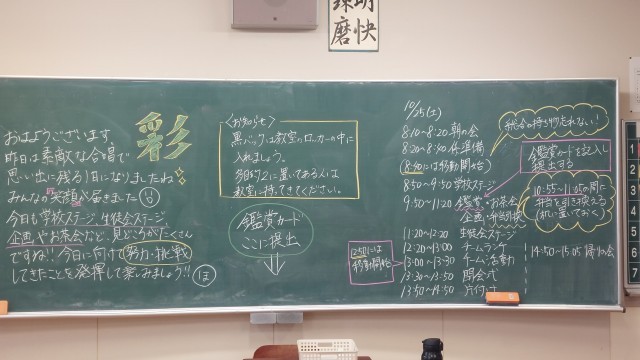 錬 明
磨 快
彩
おはようございます
昨日は素敵な合唱で
思い出に残る1日になりましたね
みんなの笑顔届きました
今日も学校ステージ、生徒会ステージ
企画やお茶会など、見どころがたくさん
ですね!!今日に向けて努力・挑戦
してきたことを発揮して楽しみましょう!!
<お知らせ>
黒バックは教室のロッカーの中に
入れましょう。
多目的2に置いてある人は
教室に持ってきてください。
鑑賞カード
ここに提出
10/25(土)
8:10~8:20 朝の会
8:20~8:40 準備
(8:40には移動開始)
8:50~9:50 学校ステージ
9:50~11:20 鑑賞・お茶会
企画・弁当引換
11:20~12:20 生徒会ステージ
12:20~13:00 チームランチ
13:00~13:30 チーム活動
13:30~13:50 閉会式
13:50~14:50 片付け
12:50には
移動開始
総合の持ち物忘れない!
鑑賞カードを記入し
提出する
10:55~11:05の間に
弁当を引き換える
(机に置いておく)
14:50~15:05 帰りの会
1
2
3
4
5
6